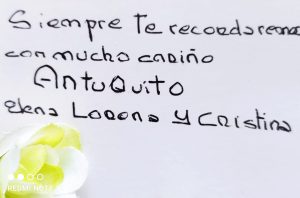 Siempre Te recordaremos
con mucho cariño
AntuQuito
elena Lorena Y Cristina
REDMI NOTE